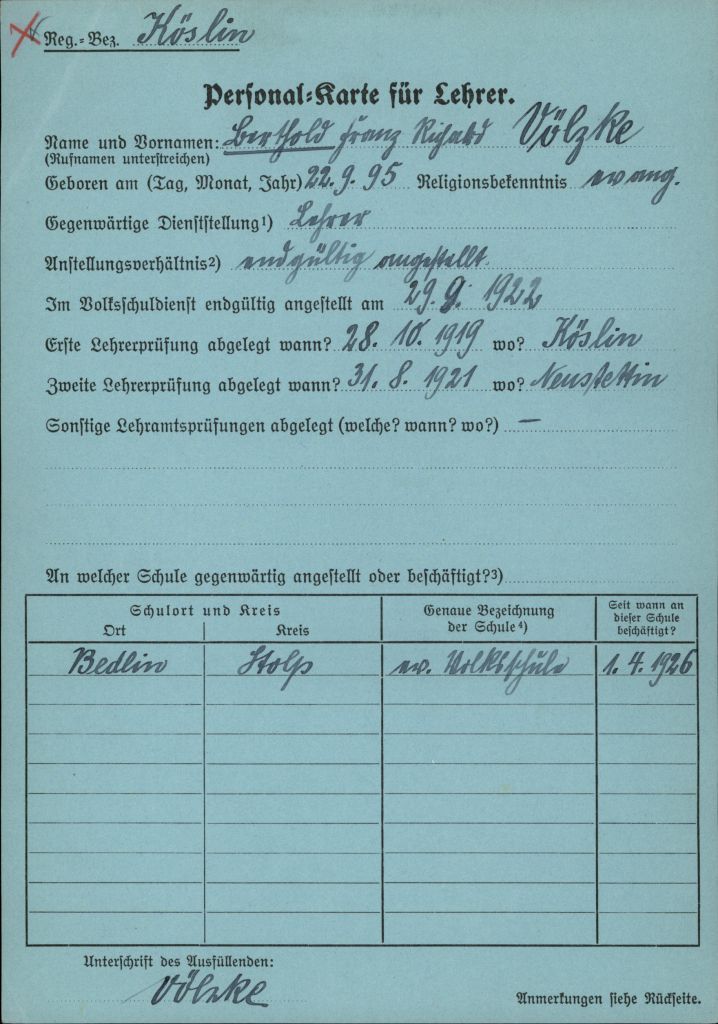 Reg.-Bez. Köslin
Personal-Karte für Lehrer.
Name und Vornamen: Berthold Franz Richard Völzke
(Rufnamen unterstreichen)
Geboren am (Tag, Monat, Jahr) 22.9.95 Religionsbekenntnis evang.
Gegenwärtige Dienststellung¹) Lehrer
Anstellungsverhältnis²) endgültig angestellt.
Im Volksschuldienst endgültig angestellt am 29.9.1922
Erste Lehrerprüfung abgelegt wann? 28.10.1919 wo? Köslin
Zweite Lehrerprüfung abgelegt wann? 31.8.1921 wo? Neustettin
Sonstige Lehramtsprüfungen abgelegt (welche? wann? wo?) —
An welcher Schule gegenwärtig angestellt oder beschäftigt?³)
Schulort und Kreis
Ort Kreis
Genaue Bezeichnung
der Schule⁴)
Seit wann an
dieser Schule
beschäftigt?
Bedlin Stolp ev. Volksschule 1.4.1926
Unterschrift des Ausfüllenden:
Völzke
Anmerkungen siehe Rückseite.